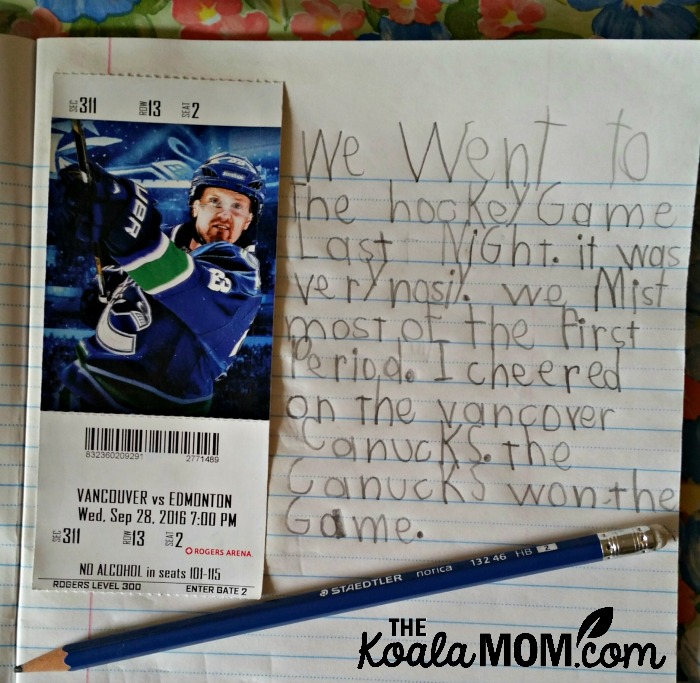 SEC 311 ROW 13 SEAT 2
BAUER
832360209291 2771489
VANCOUVER vs EDMONTON
Wed, Sep 28, 2016 7:00 PM
SEC 311 ROW 13 SEAT 2
ROGERS ARENA
NO ALCOHOL in seats 101-115
ROGERS LEVEL 300 ENTER GATE 2
We Went to
The hockey Game
Last NiGht. it was
very nosiy. we Mist
most of the first
Period. I cheered
on the vancover
Canucks. the
Canucks won the
Game.
STAEDTLER norica 132 46 HB 2
THE
KoalaMOM.com